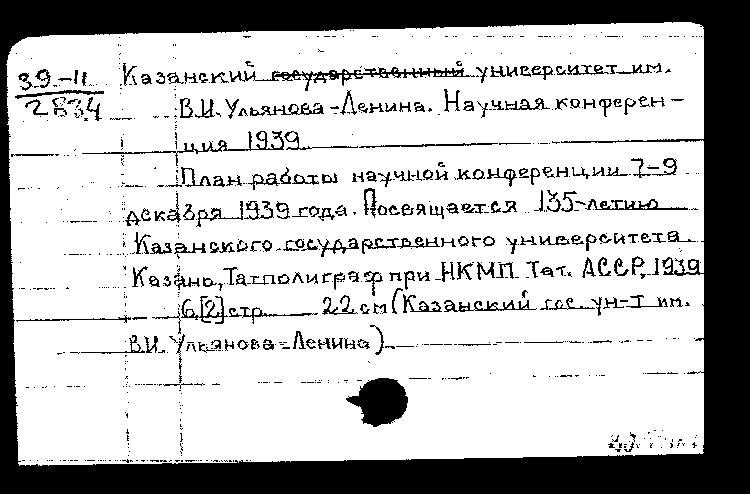 39-11
2834
Казанский государственный университет им.
В.И. Ульянова-Ленина. Научная конферен-
ция 1939
План работы научной конференции 7-9
декабря 1939 года. Посвящается 135-летию
Казанского государственного университета.
Казань, Татполиграф при НКМП Тат. АССР, 1939
6,[2] стр. 22 см (Казанский гос. ун-т им.
В.И. Ульянова-Ленина).